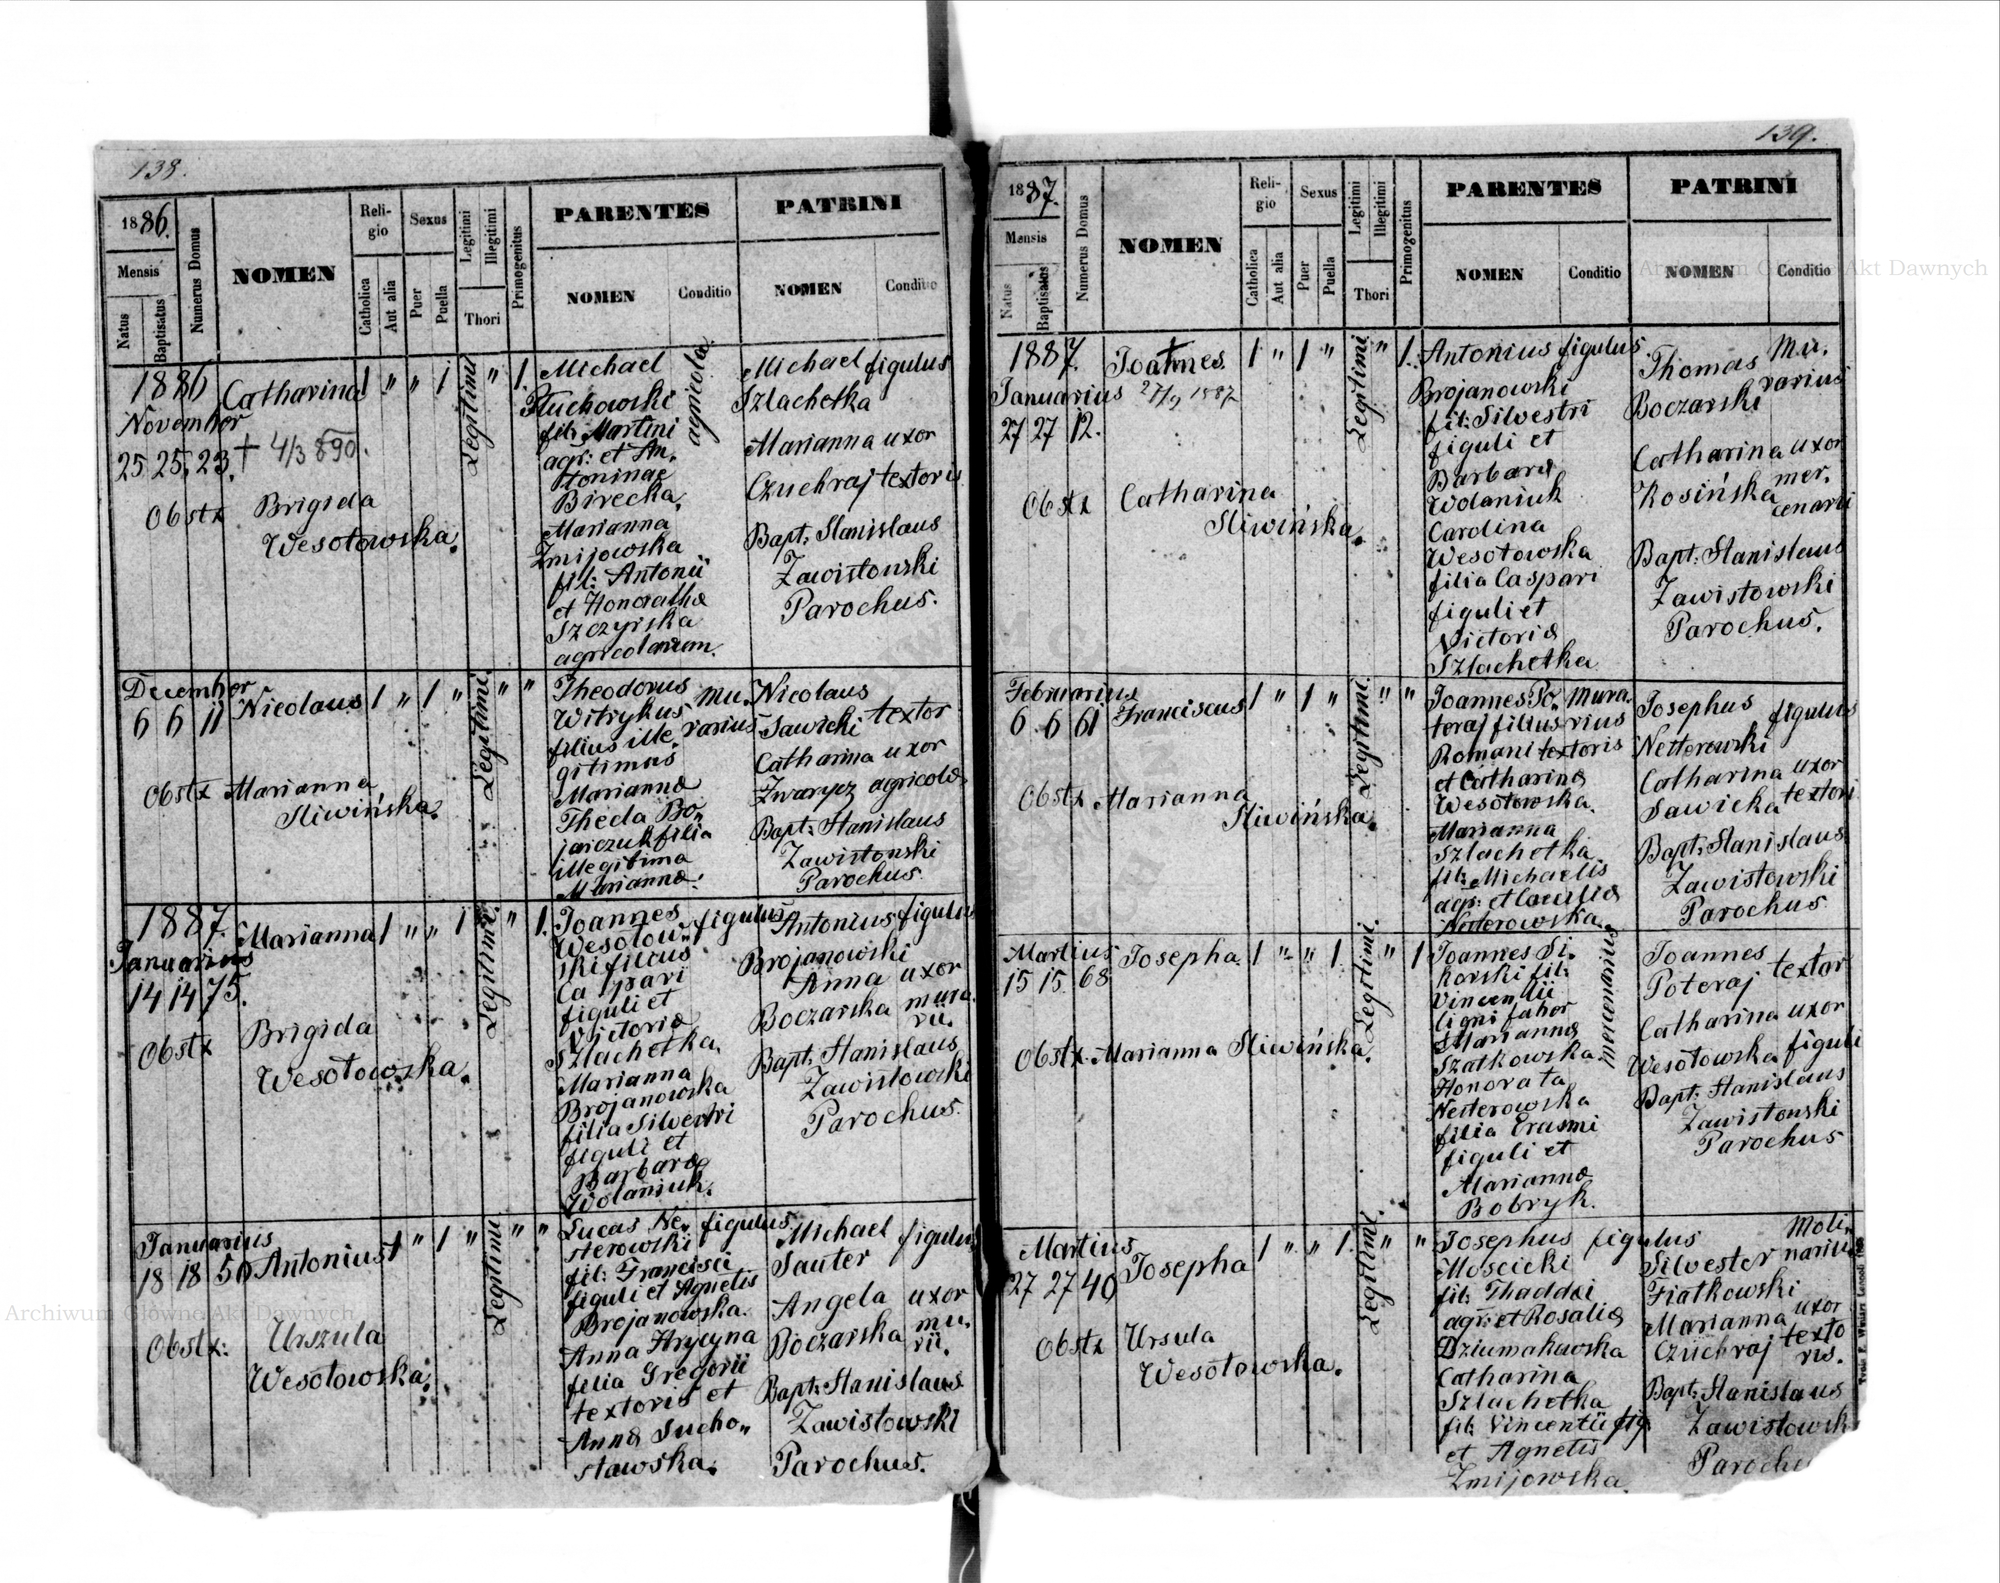 138.
1886.
Mensis
Natus
Baptisatus
Numerus Domus
NOMEN
Religio
Catholica
Aut alia
Sexus
Puer
Puella
Legitimi
Illegitimi
Thori
Primogenitus
PARENTES
NOMEN
Conditio
PATRINI
NOMEN
Conditio
1886
November
25 25. 23.
Catharina
† 4/3 890.
Obstx Brigida
Wesołowska.
1 " " 1
Legitimi
" 1.
Michael
Tłuchowski
fil: Martini
agr: et An,
toninae
Birecka,
Marianna
Żmijowska
fil: Antonii
et Honoratha
Szczyrska
agricolarum.
agricola
Michael figulus
Szlachetka
Marianna uxor
Czuchraj textoris
Bapt: Stanislaus
Zawistowski
Parochus.
December
6 6 11
Nicolaus
Obstx Marianna
Sliwińska.
1 " 1 "
Legitimi.
" "
Theodorus
Witrykus
filius ille,
gitimus
Mariannæ
Thecla Bo,
jarczuk filia
illegitima
Mariannæ.
mu,
rarius
Nicolaus
Sawicki textor
Catharina uxor
Zwarycz agricolæ
Bapt: Stanislaus
Zawistowski
Parochus.
1887.
Januarius
14 14 75.
Marianna
Obstx Brigida
Wesołowska.
1 " " 1
Legitimi.
" 1.
Joannes figulus
Wesołow,
ski filius
Caspari
figuli et
Victoriæ
Szlachetka.
Marianna
Brojanowska
filia Silvestri
figuli et
Barbaræ
Wolaniuk.
Antonius figulus
Brojanowski
Anna uxor
Boczarska mura,
rii.
Bapt: Stanislaus
Zawistowski
Parochus.
Januarius
18 18 50
Antonius
Obstx: Urszula
Wesołowska.
1 " 1 "
Legitimi.
" "
Lucas Ne, figulus
sterowski
fil: Francisci
figuli et Agnetis
Brojanowska.
Anna Hrycyna
filia Gregorii
textoris et
Annæ Sucho,
stawska.
Michael figulus
Sauter
Angela uxor
Boczarska mu,
rii.
Bapt: Stanislaus
Zawistowski
Parochus.
139.
1887.
Mensis
Natus
Baptisatus
Numerus Domus
NOMEN
Religio
Catholica
Aut alia
Sexus
Puer
Puella
Legitimi
Illegitimi
Thori
Primogenitus
PARENTES
NOMEN
Conditio
PATRINI
NOMEN
Conditio
1887.
Januarius
27 27 12.
Joannes
27/9 1887
Obstx Catharina
Sliwińska.
1 " 1 "
Legitimi.
" 1.
Antonius figulus
Brojanowski
fil: Silvestri
figuli et
Barbaræ
Wolaniuk
Carolina
Wesołowska
filia Caspari
figuli et
Victoriæ
Szlachetka
Thomas Mu,
rarius
Boczarski
Catharina uxor
Kosińska mer,
cenarii
Bapt: Stanislaus
Zawistowski
Parochus.
Februarius
6 6 61
Franciscus
Obstx Marianna
Sliwińska.
1 " 1 "
Legitimi.
" "
Joannes Po, mura
teraj filius rius
Romani textoris
et Catharinæ
Wesołowska.
Marianna
Szlachetka
fil: Michaelis
agr: et Cæciliæ
Nesterowska.
Josephus figulus
Nesterowski
Catharina uxor
Sawicka textori
Bapt: Stanislaus
Zawistowski
Parochus
Martius
15 15 68
Josepha.
Obstx. Marianna Sliwińska.
1 " " 1.
Legitimi.
" 1
Joannes Si,
korski fil:
Vincentii
ligni fabor
Mariannæ
Szatkowska
Honorata
Nesterowska
filia Erasmi
figuli et
Mariannæ
Bobryk.
mercenarius
Joannes
Poteraj textor
Catharina uxor
Wesołowska figuli
Bapt: Stanislaus
Zawistowski
Parochus
Martius
27 27 40
Josepha
Obstx Ursula
Wesołowska.
1 " " 1.
Legitimi.
" "
Josephus figulus
Moscicki
fil: Thaddæi
agr: et Rosaliæ
Dziumakowska
Catharina
Szlachetka
fil: Vincentii fig.
et Agnetis
Żmijowska.
Silvester Moli,
narius
Fiatkowski
Marianna uxor
Czuchraj texto
ris.
Bapt: Stanislaus
Zawistowsk
Paroch
Archiwum Główne Akt Dawnych
Archiwum Główne Akt Dawnych